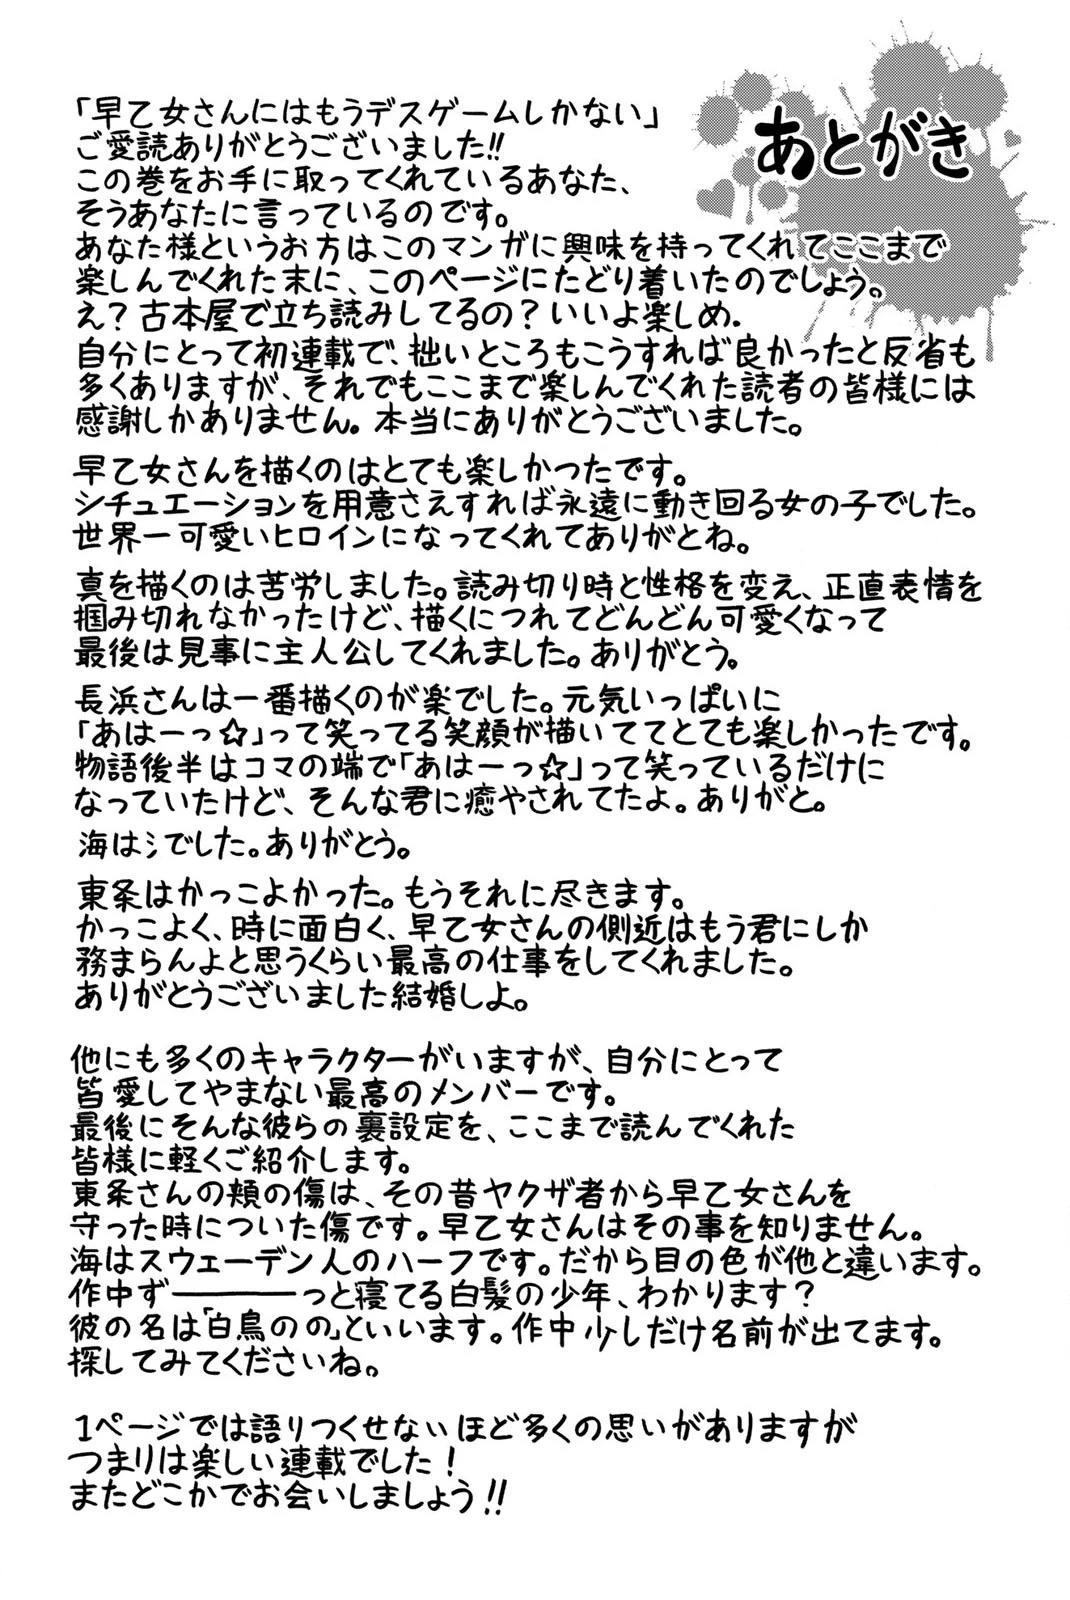 あとがき
「早乙女さんにはもうデスゲームしかない」
ご愛読ありがとうございました!!
この巻をお手に取ってくれているあなた、
そうあなたに言っているのです。
あなた様というお方はこのマンガに興味を持ってくれてここまで
楽しんでくれた末に、このページにたどり着いたのでしょう。
え？古本屋で立ち読みしてるの？いいよ楽しめ.
自分にとって初連載で、拙いところもこうすれば良かったと反省も
多くありますが、それでもここまで楽しんでくれた読者の皆様には
感謝しかありません。本当にありがとうございました。
早乙女さんを描くのはとても楽しかったです。
シチュエーションを用意さえすれば永遠に動き回る女の子でした。
世界一可愛いヒロインになってくれてありがとね。
真を描くのは苦労しました。読み切り時と性格を変え、正直表情を
掴み切れなかったけど、描くにつれてどんどん可愛くなって
最後は見事に主人公してくれました。ありがとう。
長浜さんは一番描くのが楽でした。元気いっぱいに
「あはーっ☆」って笑ってる笑顔が描いててとても楽しかったです。
物語後半はコマの端で「あはーっ☆」って笑っているだけに
なっていたけど、そんな君に癒やされてたよ。ありがと。
海はシでした。ありがとう。
東条はかっこよかった。もうそれに尽きます。
かっこよく、時に面白く、早乙女さんの側近はもう君にしか
務まらんよと思うくらい最高の仕事をしてくれました。
ありがとうございました結婚しよ。
他にも多くのキャラクターがいますが、自分にとって
皆愛してやまない最高のメンバーです。
最後にそんな彼らの裏設定を、ここまで読んでくれた
皆様に軽くご紹介します。
東条さんの頬の傷は、その昔ヤクザ者から早乙女さんを
守った時についた傷です。早乙女さんはその事を知りません。
海はスウェーデン人のハーフです。だから目の色が他と違います。
作中ず————っと寝てる白髪の少年、わかります？
彼の名は「白鳥のの」といいます。作中少しだけ名前が出てます。
探してみてくださいね。
1ページでは語りつくせないほど多くの思いがありますが
つまりは楽しい連載でした！
またどこかでお会いしましょう!!